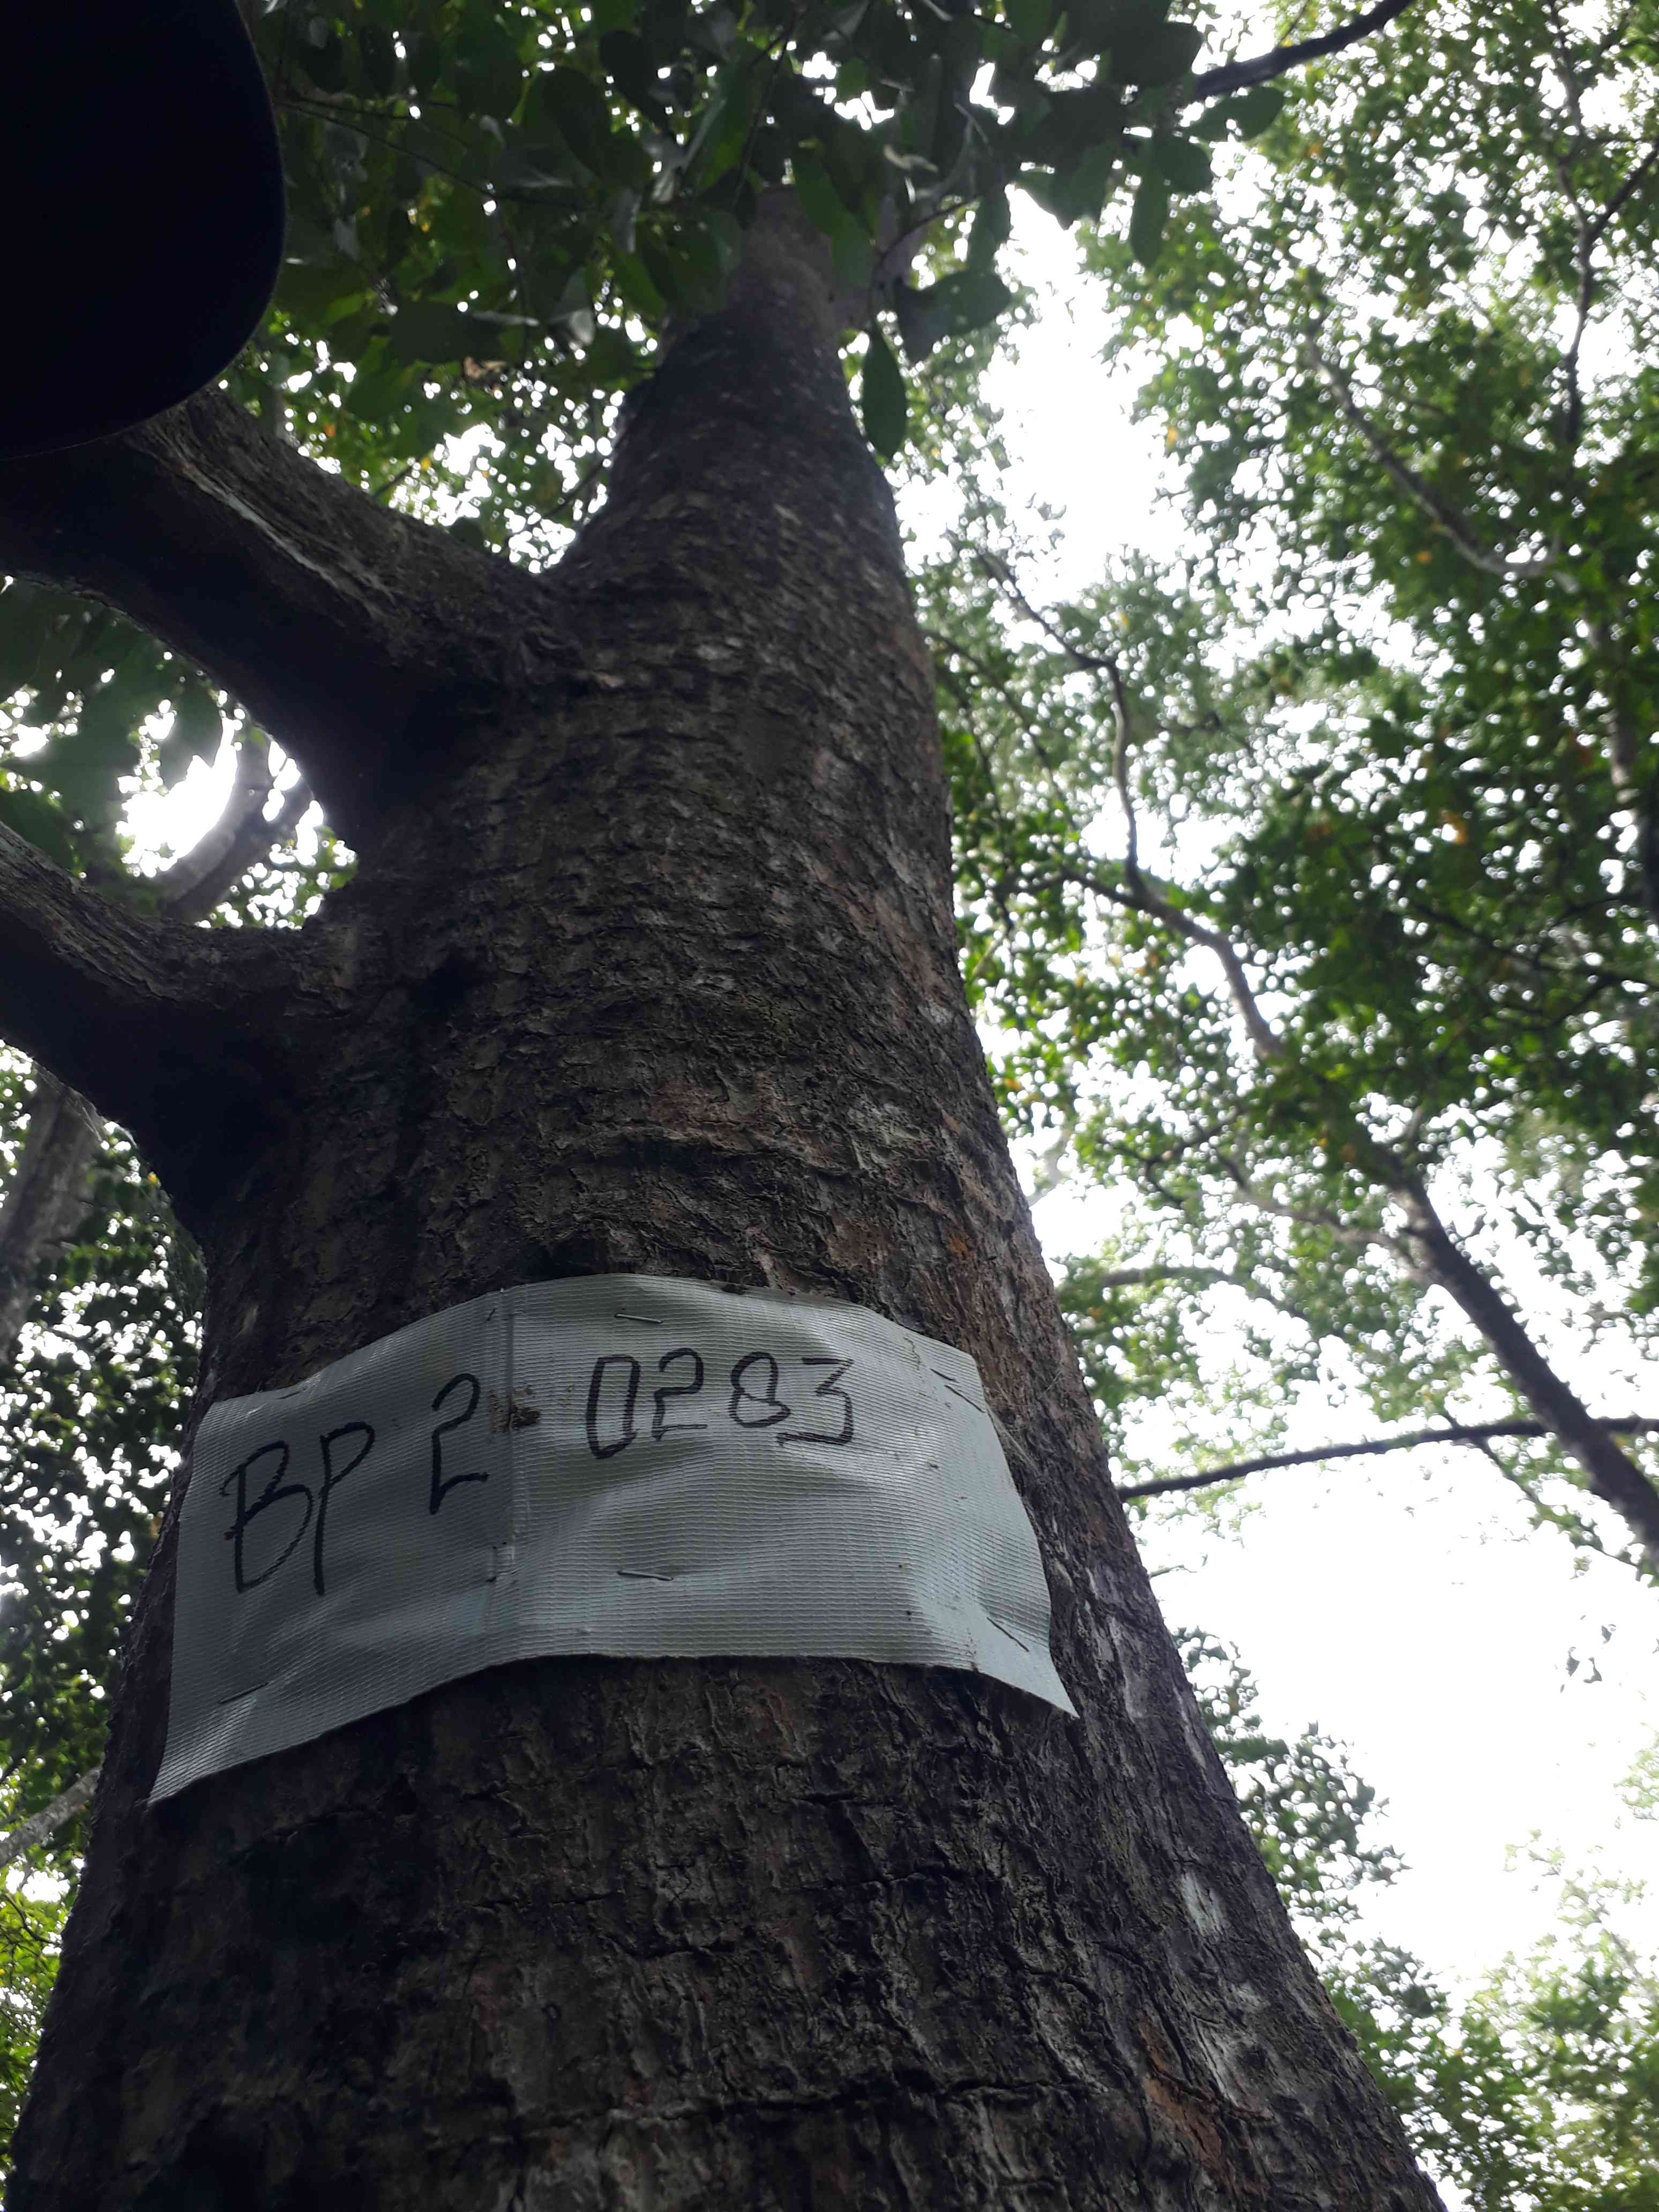 BP 2 - 0283